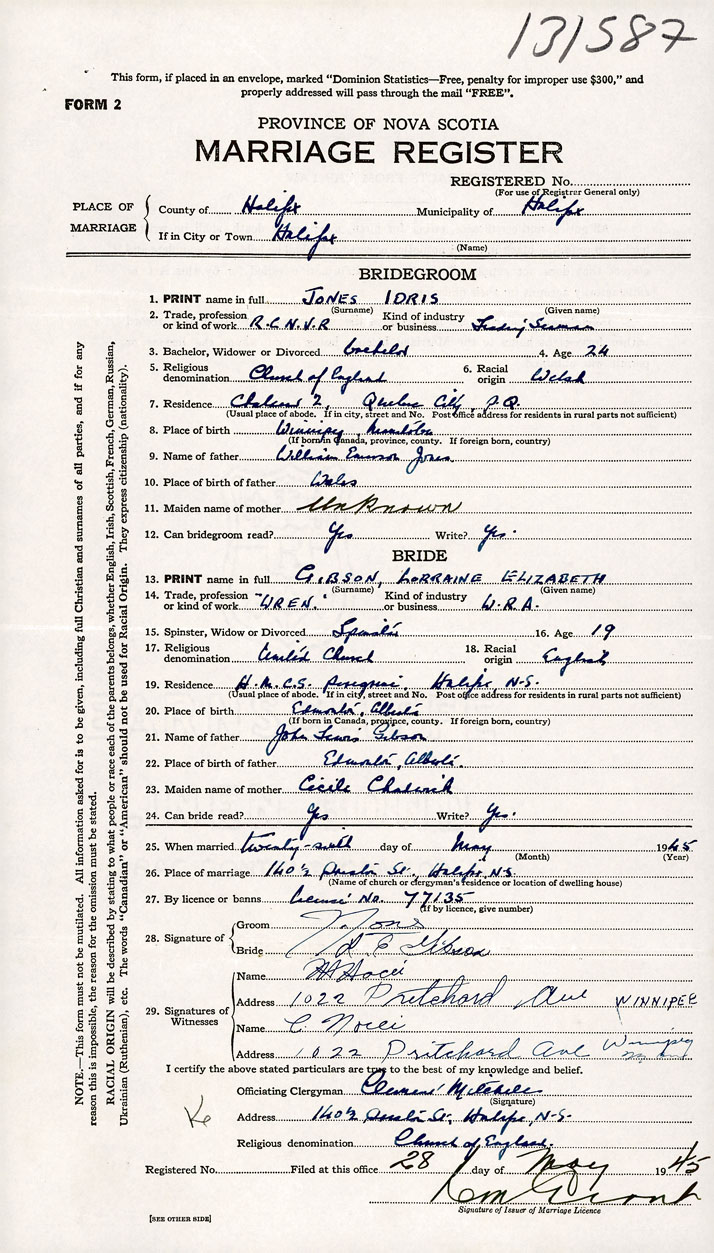 131587
This form, if placed in an envelope, marked "Dominion Statistics—Free, penalty for improper use $300," and
properly addressed will pass through the mail "FREE".
FORM 2
PROVINCE OF NOVA SCOTIA
MARRIAGE REGISTER
REGISTERED No.
(For use of Registrar General only)
PLACE OF MARRIAGE
County of Halifax Municipality of Halifax
If in City or Town Halifax
(Name)
BRIDEGROOM
1. PRINT name in full JONES IDRIS
(Surname) (Given name)
2. Trade, profession or kind of work R.C.N.V.R Kind of industry or business Leading Seaman
3. Bachelor, Widower or Divorced bachelor 4. Age 24
5. Religious denomination Church of England 6. Racial origin Welsh
7. Residence 2, Quebec City, P.Q.
(Usual place of abode. If in city, street and No. Post office address for residents in rural parts not sufficient)
8. Place of birth Winnipeg, Manitoba
(If born in Canada, province, county. If foreign born, country)
9. Name of father William Jones
10. Place of birth of father Wales
11. Maiden name of mother Unknown
12. Can bridegroom read? Yes Write? Yes.
BRIDE
13. PRINT name in full GIBSON, LORRAINE ELIZABETH
(Surname) (Given name)
14. Trade, profession or kind of work "WREN." Kind of industry or business W.R.A.
15. Spinster, Widow or Divorced Spinster 16. Age 19
17. Religious denomination United Church 18. Racial origin English
19. Residence H.M.C.S. Peregrine, Halifax, N.S.
(Usual place of abode. If in city, street and No. Post office address for residents in rural parts not sufficient)
20. Place of birth Edmonton, Alberta
(If born in Canada, province, county. If foreign born, country)
21. Name of father John Lewis Gibson
22. Place of birth of father Edmonton, Alberta.
23. Maiden name of mother Cecile Chadwick
24. Can bride read? Yes Write? Yes.
25. When married twenty-sixth day of May 1945
(Month) (Year)
26. Place of marriage 140½ Preston St., Halifax, N.S.
(Name of church or clergyman's residence or location of dwelling house)
27. By licence or banns licence No. 77135
(If by licence, give number)
28. Signature of
Groom I. Jones
Bride L E Gibson
29. Signatures of Witnesses
Name
Address 1022 Pritchard Ave WINNIPEG
Name
Address 1022 Pritchard Ave Winnipeg
I certify the above stated particulars are true to the best of my knowledge and belief.
Officiating Clergyman Clement Mitchell
(Signature)
Address 140½ Preston St, Halifax, N.S.
Religious denomination Church of England.
Registered No. Filed at this office 28 day of May 1945
Signature of Issuer of Marriage Licence
[SEE OTHER SIDE]
NOTE.—This form must not be mutilated. All information asked for is to be given, including full Christian and surnames of all parties, and if for any
reason this is impossible, the reason for the omission must be stated.
RACIAL ORIGIN will be described by stating to what people or race each of the parents belongs, whether English, Irish, Scottish, French, German, Russian,
Ukrainian (Ruthenian), etc. The words "Canadian" or "American" should not be used for Racial Origin. They express citizenship (nationality).